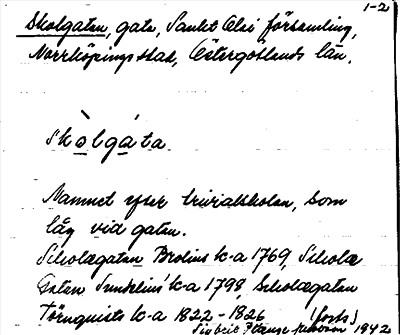 1-2
Skolgatan, gata, Sankt Olai församling,
Norrköpings stad, Östergötlands län.
Skòlgáta
Namnet efter trivialskolan, som
låg vid gatan.
Scholægatan Brolins k-a 1769, Scholæ
Gatan Sundelius' k-a 1798, Scholægatan
Törnquists k-a 1822-1826 (forts)
1942